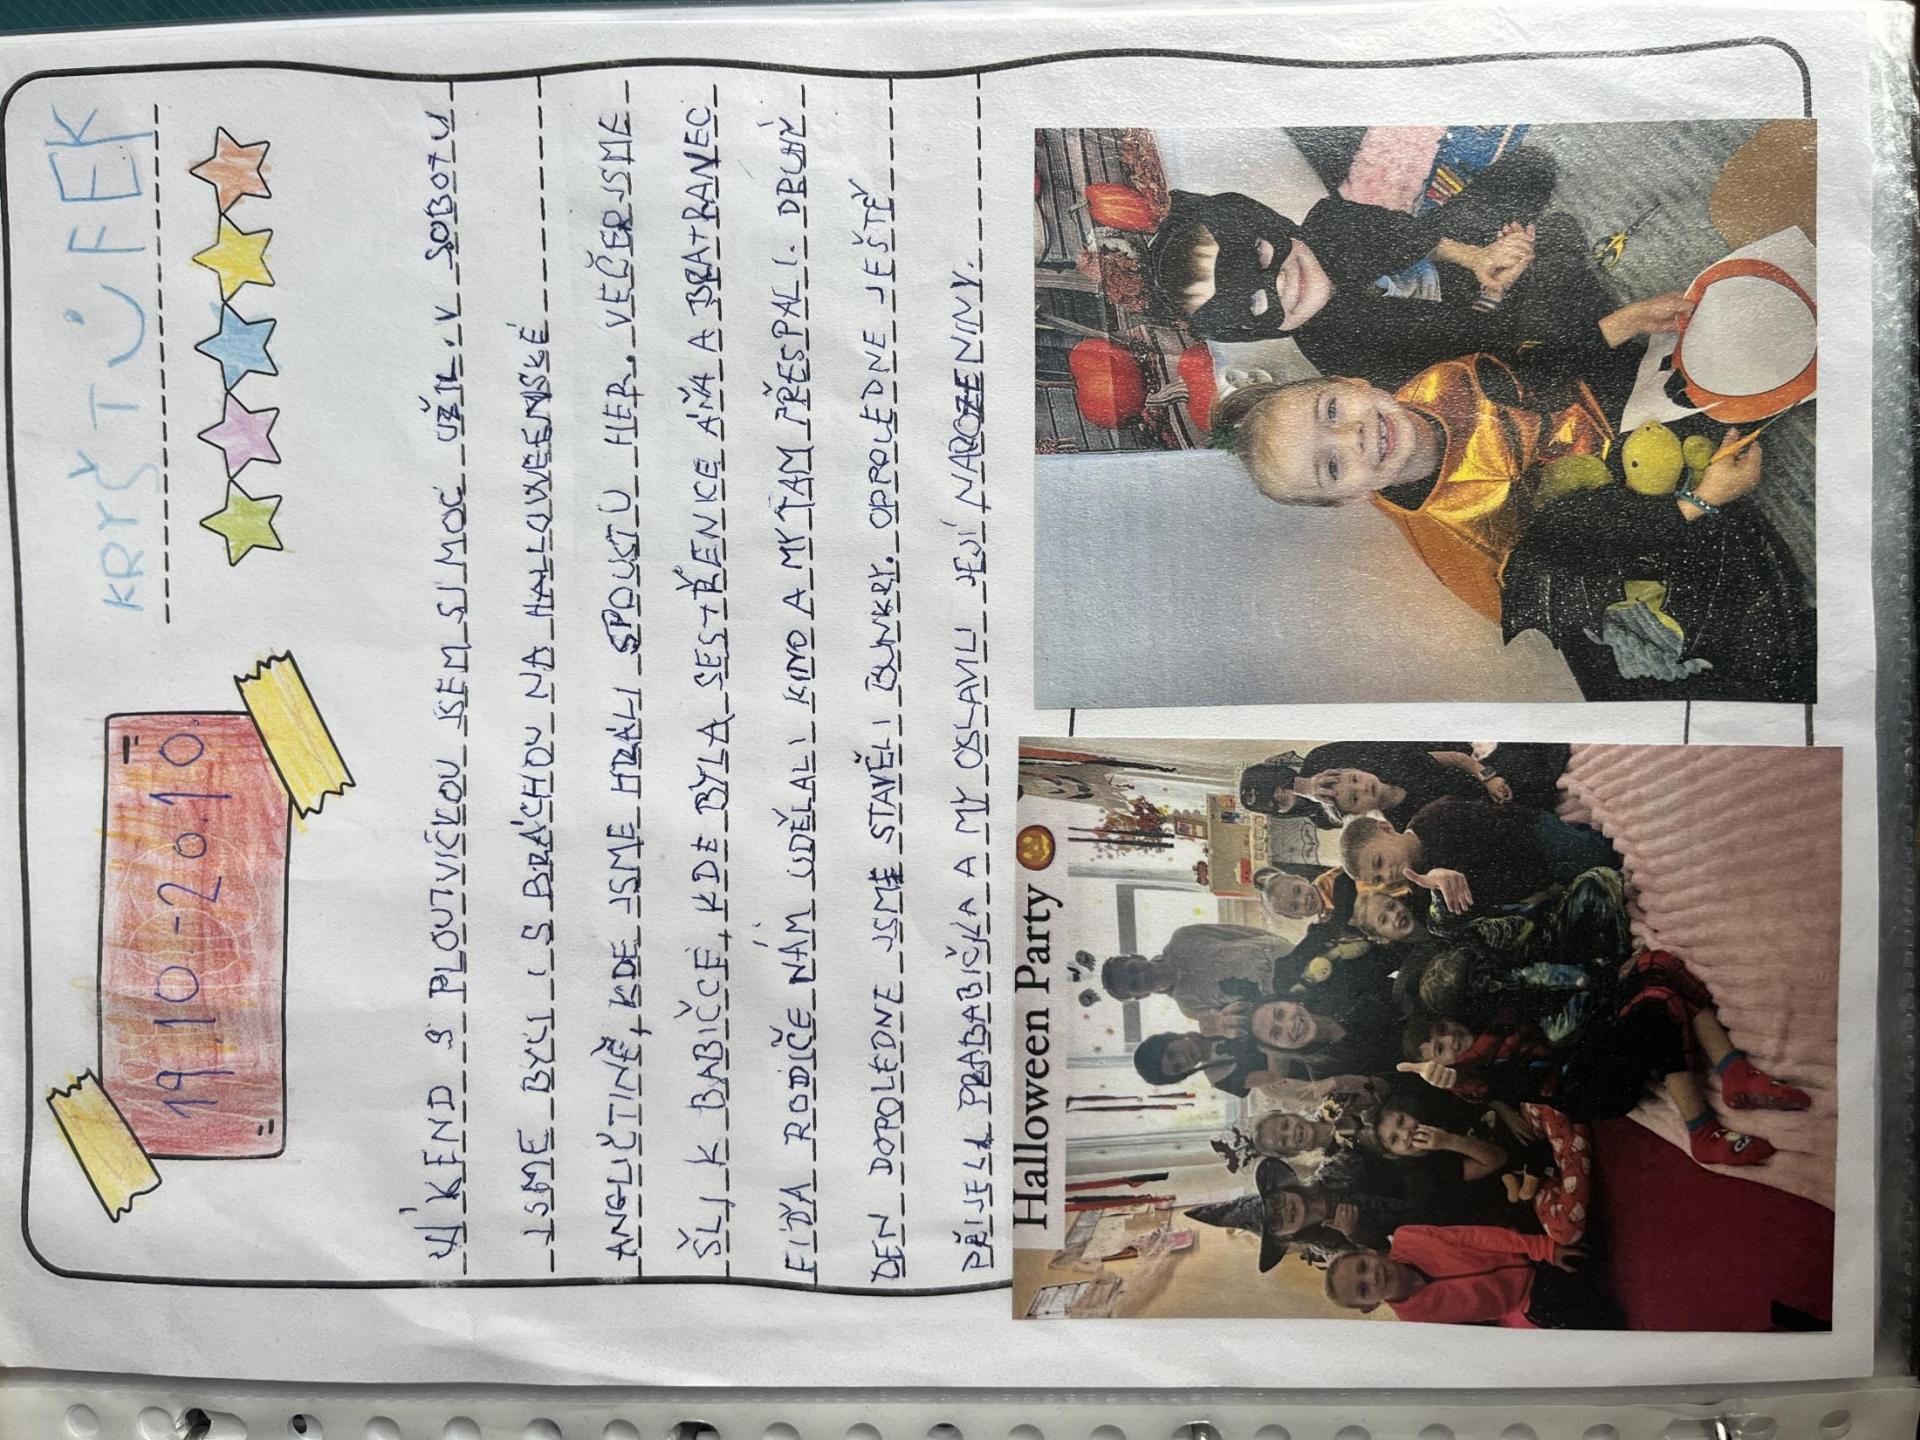 KRYŠTŮFEK
19.10.-20.10.
VÍKEND S PLOUTVIČKOU JSEM SI MOC UŽIL. V SOBOTU
JSME BYLI I S BRÁCHOU NA HALLOWEENSKÉ
ANGLIČTINĚ, KDE JSME HRÁLI SPOUSTU HER. VEČER JSME
ŠLI K BABIČCE, KDE BYLA SESTŘENICE AŇA A BRATRANEC
FIĎA RODIČE NÁM UDĚLALI KINO A MY TAM PŘESPALI. DRUHÝ
DEN DOPOLEDNE JSME STAVĚLI BUNKRY. OPPOLEDNE JEŠTĚ
PŘIJELA PRABABIČKA A MY OSLAVILI JEJÍ NAROZENINY.
Halloween Party 🎃